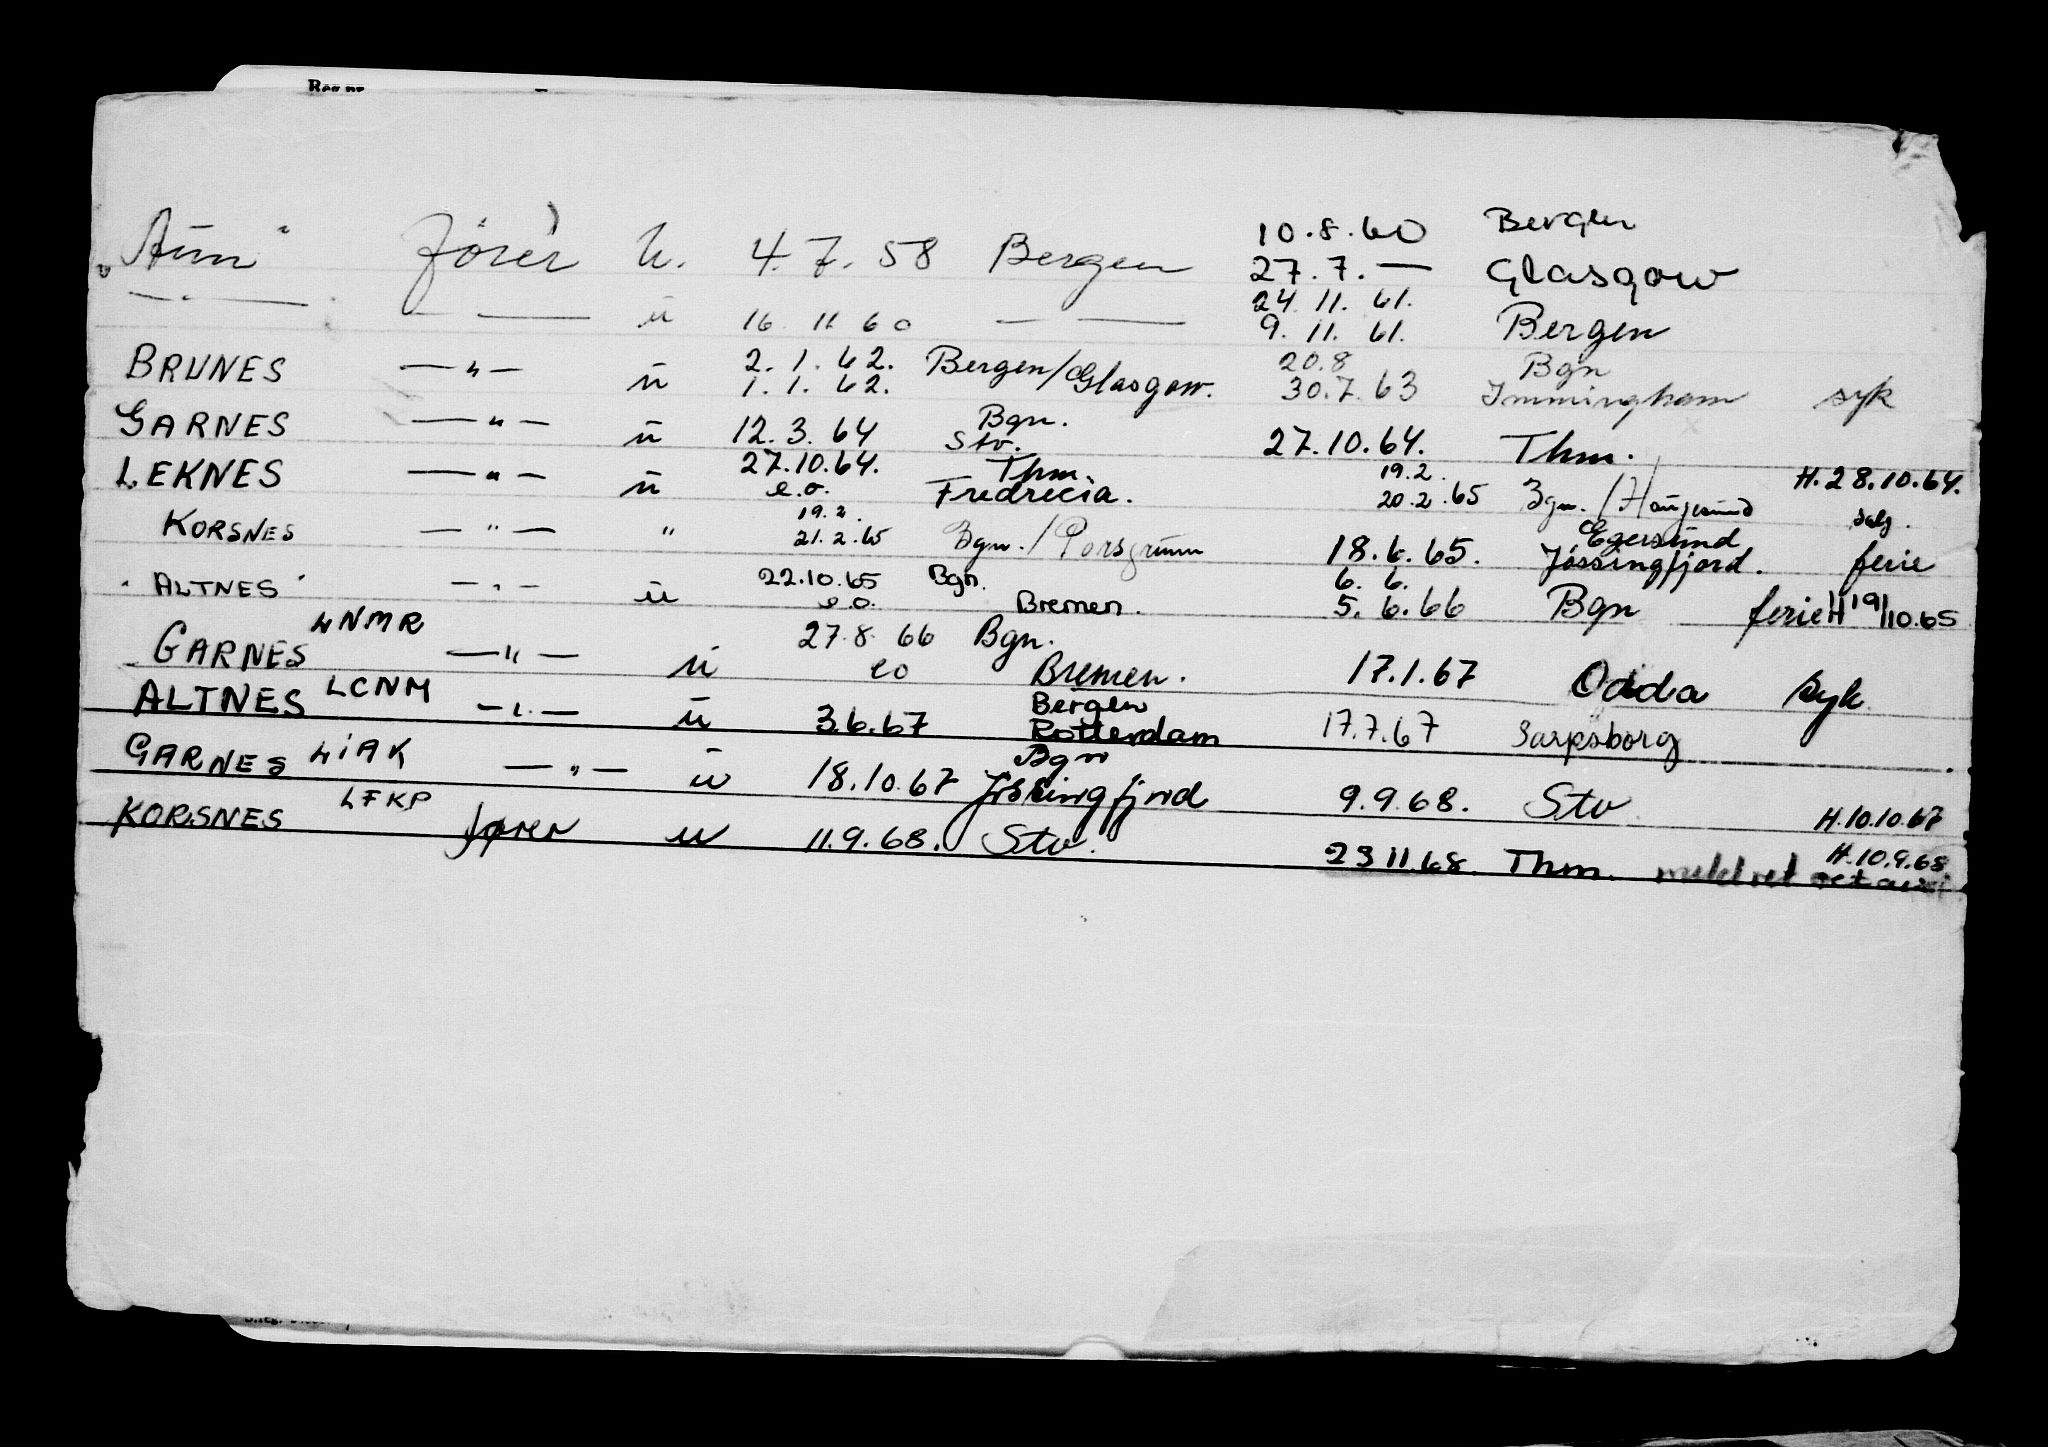 "Aun" fører u. 4.7.58 Bergen 10.8.60 Bergen
27.7.— Glasgow
—"— — — u 16 11 60 — — 24.11.61.
9.11.61. Bergen
BRUNES —"— u 2.1.62. Bergen/Glasgow. 20.8 Bgn
1.1.62. 30.7.63 Immingham syk
GARNES —"— u 12.3.64 Bgn. Stv. 27.10.64. Thm.
LEKNES —"— u 27.10.64. Thm. 19.2. H.28.10.64.
e.o. Fredrecia. 20.2.65 Bgn./Haugesund salg.
KORSNES —"— " 19.2. 21.2.65 Bgn./Porsgrunn 18.6.65. Egersund Jøssingfjord. ferie
"ALTNES" —"— u 22.10.65 Bgn. 6.6.
e.o. Bremen. 5.6.66 Bgn ferie H 19/10.65
GARNES LNMR —"— u 27.8.66 Bgn.
eo Bremen. 17.1.67 Odda syk
ALTNES LCNM —"— u 3.6.67 Bergen Rotterdam 17.7.67 Sarpsborg
GARNES LIAK —"— u 18.10.67 Bgn Jøssingfjord 9.9.68. Stv H.10.10.67
KORSNES LFKP fører u 11.9.68. Stv. 23 11.68. Thm. H.10.9.68